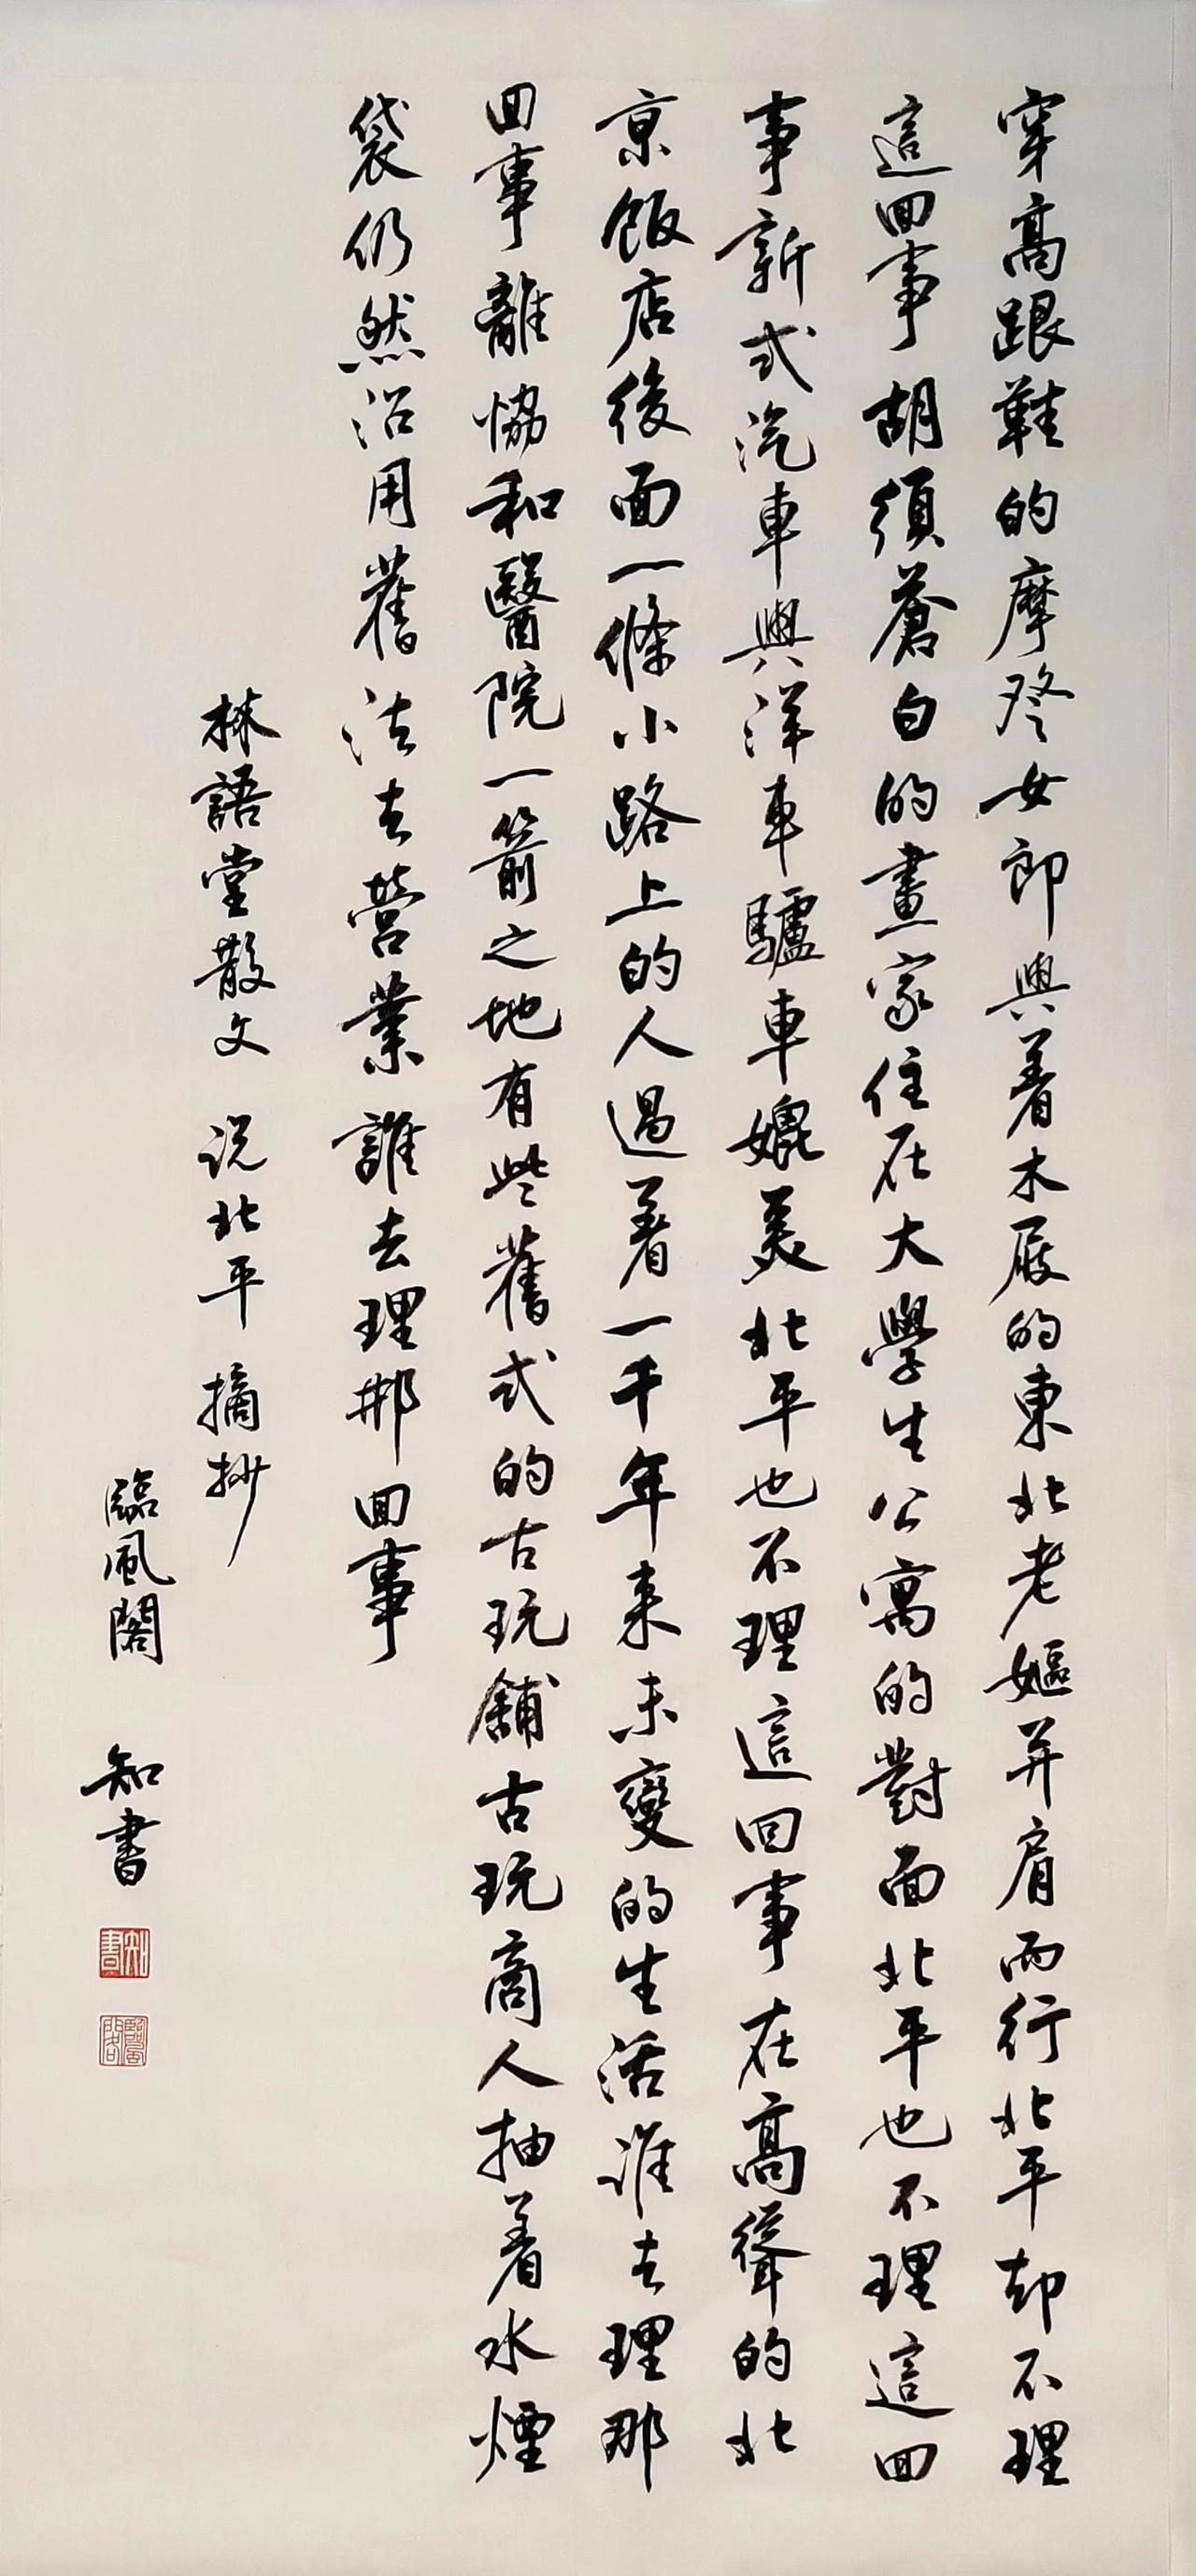 穿高跟鞋的摩登女郎與着木屐的東北老嫗并肩而行北平却不理
這回事胡須蒼白的畫家住在大學生公寓的對面北平也不理這回
事新式汽車與洋車驢車媲美北平也不理這回事在高聳的北
京飯店後面一條小路上的人過着一千年来未變的生活誰去理那
回事離協和醫院一箭之地有些舊式的古玩鋪古玩商人抽着水煙
袋仍然沿用舊法去營業誰去理那回事
林語堂散文 说北平 摘抄
臨風閣 知書
知書
臨風閣